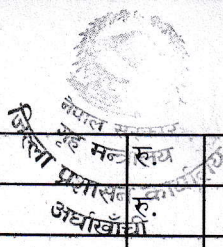 नेपाल सरकार
गृह मन्त्रालय
जिल्ला प्रशासन कार्यालय
अर्घाखाँची
रु
रु.